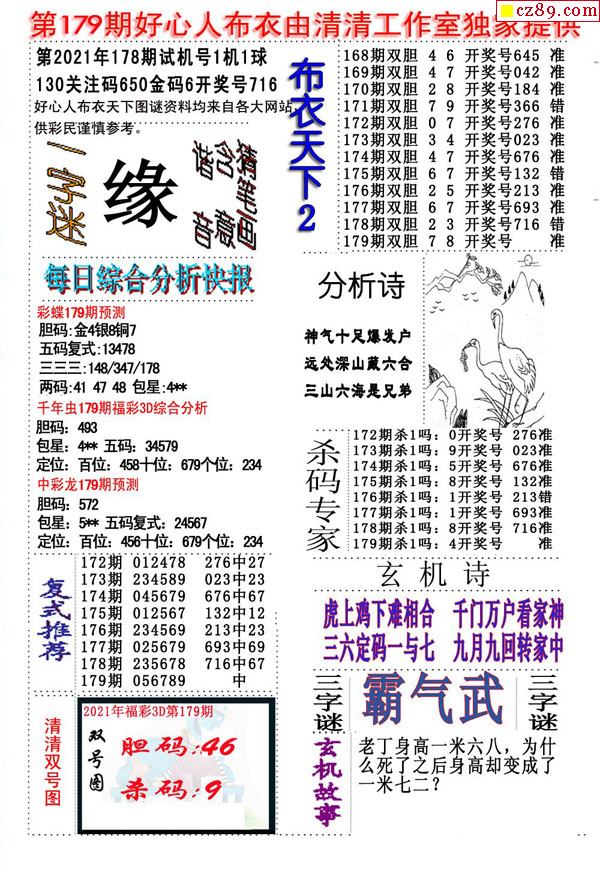 cz89.com
第179期好心人布衣由清清工作室独家提供
第2021年178期试机号1机1球
130关注码650金码6开奖号716
好心人布衣天下图谜资料均来自各大网站
供彩民谨慎参考。
一字迷
缘
谐音
含意
猜笔画
布衣天下2
168期双胆 4 6 开奖号645 准
169期双胆 4 7 开奖号042 准
170期双胆 2 8 开奖号184 准
171期双胆 7 9 开奖号366 错
172期双胆 0 7 开奖号276 准
173期双胆 3 4 开奖号023 准
174期双胆 4 7 开奖号676 准
175期双胆 6 7 开奖号132 错
176期双胆 2 5 开奖号213 准
177期双胆 6 7 开奖号693 准
178期双胆 2 3 开奖号716 错
179期双胆 7 8 开奖号 准
每日综合分析快报
彩蝶179期预测
胆码:金4银8铜7
五码复式:13478
三三三:148/347/178
两码:41 47 48 包星:4**
千年虫179期福彩3D综合分析
胆码：493
包星：4** 五码：34579
定位：百位：458十位：679个位：234
中彩龙179期预测
胆码：572
包星：5** 五码复式：24567
定位：百位：456十位：679个位：234
分析诗
神气十足爆发户
远处深山藏六合
三山六海是兄弟
杀码专家
172期杀1吗：0开奖号 276准
173期杀1吗：9开奖号 023准
174期杀1吗：5开奖号 676准
175期杀1吗：8开奖号 132准
176期杀1吗：1开奖号 213错
177期杀1吗：1开奖号 693准
178期杀1吗：8开奖号 716准
179期杀1吗：4开奖号 准
复式推荐
172期 012478 276中27
173期 234589 023中23
174期 045679 676中67
175期 012567 132中12
176期 234569 213中23
177期 025679 693中69
178期 235678 716中67
179期 056789 中
玄机诗
虎上鸡下难相合 千门万户看家神
三六定码一与七 九月九回转家中
清清双号图
2021年福彩3D第179期
双号图
胆码:46
杀码:9
三字谜
霸气武
三字谜
玄机故事
老丁身高一米六八，为什
么死了之后身高却变成了
一米七二？